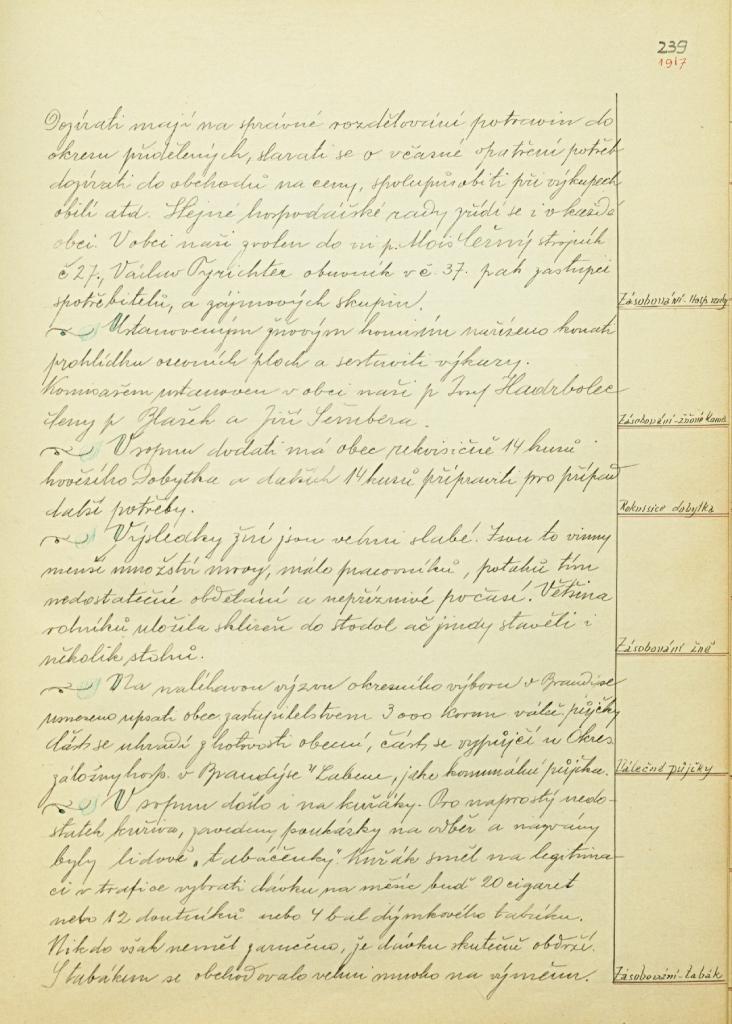 239
1917
Dozírati mají na správné rozdělování potravin do
okresu přidělených, starati se o včasné opatření potřeb
dozírati do obchodů na ceny, spolupůsobiti při výkupech
obilí atd. Stejné hospodářské rady zřídí se i v každé
obci. V obci naší zvolen do ní p. Alois Černý strojník
č 27., Václav Tyrichter obuvník v č. 37. pak zástupci
spotřebitelů, a zájmových skupin.
Zásobování-Hosp. rady
Ustanoveným žňovým komisím nařízeno konati
prohlídku osevních ploch a sestaviti výkazy.
Komisařem ustanoven v obci naší p Josef Hadrbolec
členy p Blažek a Jiří Sembera.
Zásobování-žňové kom.
V srpnu dodati má obec rekvisičně 14 kusů
hovězího Dobytka a dalších 14 kusů připraviti pro případ
další potřeby.
Rekvisice dobytka
Výsledky žní jsou velmi slabé. Jsou to vinny
menší množství mrvy, málo pracovníků, potahů tím
nedostatečné obdělání a nepříznivé počasí. Většina
rolníků uložila sklizeň do stodol ač jindy stavěli i
několik stohů.
Zásobování žně
Na naléhavou výzvu okresního výboru v Brandýse
usneseno upsati obec. zastupitelstvem 3000 korun váleč. půjčky
část se uhradí z hotovosti obecní, část se vypůjčí u Okres.
záložny hosp. v Brandýse n/Labem, jako komunální půjčka.
Válečné půjčky
V srpnu došlo i na kuřáky. Pro naprostý nedo-
statek kuřiva, zavedeny poukázky na odběr a nazvány
byly lidově „tabáčenky". Kuřák směl na legitima-
ci v trafice vybrati dávku na měsíc buď 20 cigaret
nebo 12 doutníků nebo 4 bal dýmkového tabáku.
Nikdo však neměl zaručeno, že dávku skutečně obdrží.
S tabákem se obchodovalo velmi mnoho na výměnu.
Zásobování-tabák